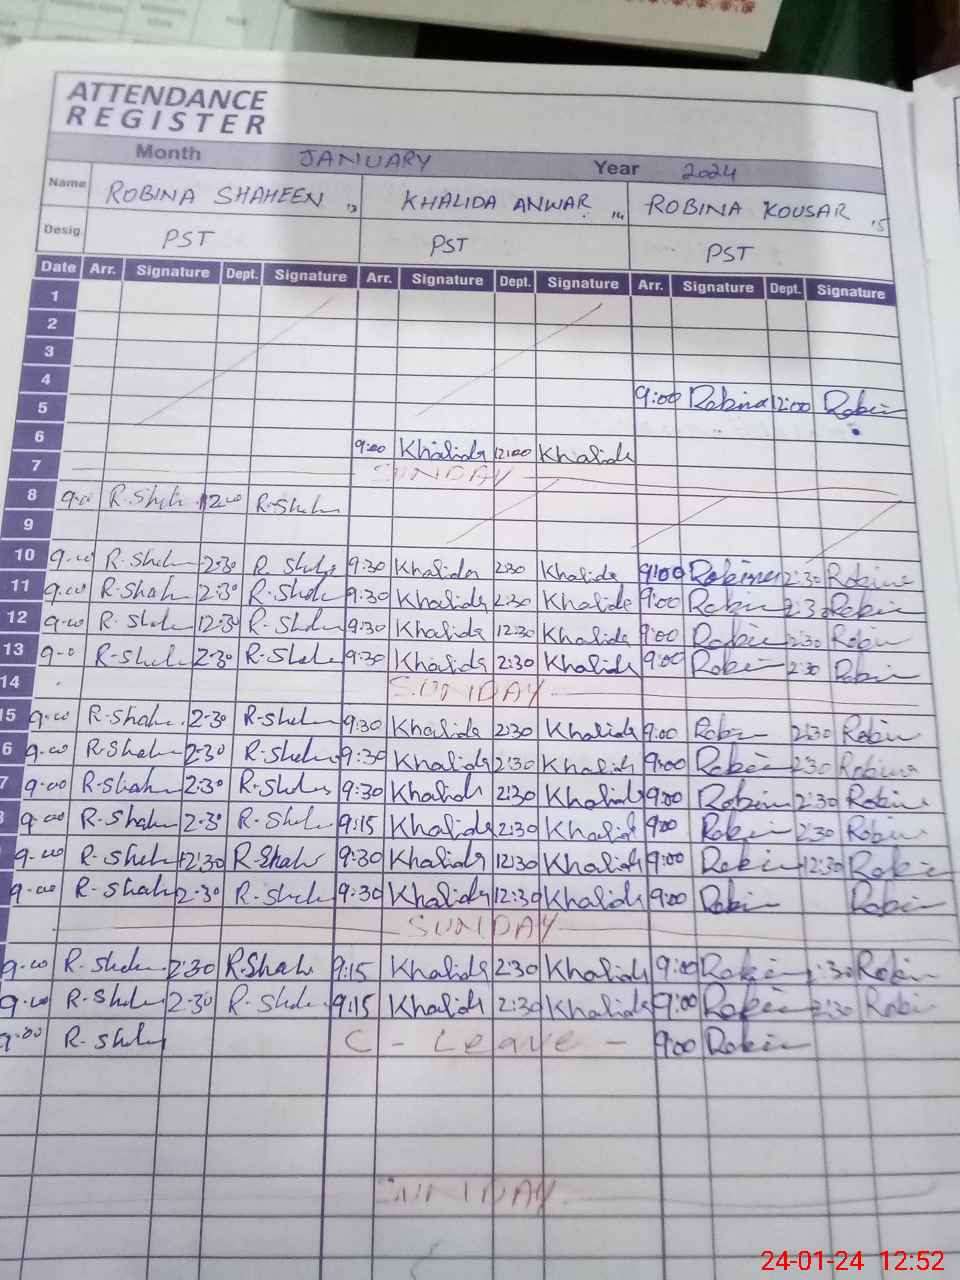 ATTENDANCE
REGISTER
Month JANUARY Year 2024
Name ROBINA SHAHEEN 13 KHALIDA ANWAR 14 ROBINA KOUSAR 15
Desig. PST PST PST
Date Arr. Signature Dept. Signature Arr. Signature Dept. Signature Arr. Signature Dept. Signature
1
2
3
4
5 9:00 Robina 12:00 Robin
6 9:00 Khalida 12:00 Khalida
7 SUNDAY
8 9-00 R.Sheh 12-00 R-Sheh
9
10 9-00 R.Sheh 2-30 R.Sheh 9:30 Khalida 2:30 Khalida 9:00 Robina 2:30 Robina
11 9-00 R.Shah 2-30 R.Sheh 9:30 Khalida 2:30 Khalida 9:00 Robin 2:30 Robin
12 9-00 R.Sheh 12-30 R.Sheh 9:30 Khalida 12:30 Khalida 9:00 Robin 12:30 Robin
13 9-0 R-Sheh 2-30 R.Sheh 9:30 Khalida 2:30 Khalida 9:00 Robin 2:30 Robin
14 SUNDAY
15 9-00 R-Shah 2-30 R-Sheh 9:30 Khalida 2:30 Khalida 9:00 Robin 2:30 Robin
6 9-00 R-Shah 2-30 R.Sheh 9:30 Khalida 2:30 Khalida 9:00 Robin 2:30 Robina
7 9-00 R-Shah 2-30 R.Sheh 9:30 Khalida 2:30 Khalida 9:00 Robin 2:30 Robin
9-00 R.Shah 2-30 R.Sheh 9:15 Khalida 2:30 Khalida 9:00 Robin 2:30 Robin
9-00 R.Sheh 12:30 R.Shah 9:30 Khalida 12:30 Khalida 9:00 Robin 12:30 Robin
9-00 R-Shah 2-30 R-Sheh 9:30 Khalida 12:30 Khalida 9:00 Robin Robin
SUNDAY
9-00 R.Sheh 2:30 R.Shah 9:15 Khalida 2:30 Khalida 9:00 Robin 2:30 Robin
9-00 R-Sheh 2-30 R-Sheh 9:15 Khalida 2:30 Khalida 9:00 Robin 2:30 Robin
9-00 R-Sheh C - Leave - 9:00 Robin
SUNDAY
24-01-24 12:52